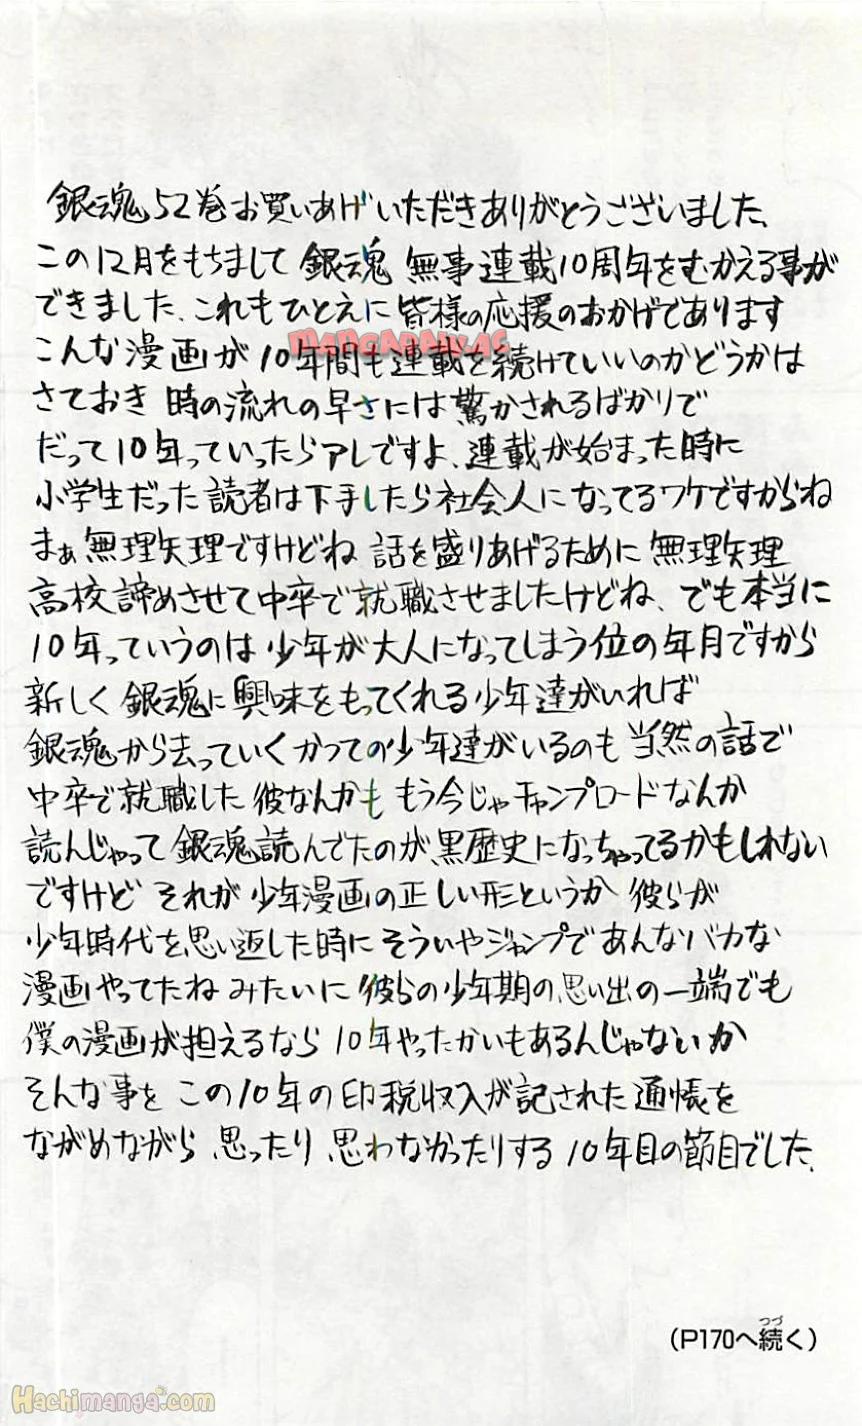 銀魂52巻お買いあげいただきありがとうございました、
この12月をもちまして 銀魂 無事連載10周年をむかえる事が
できました、これもひとえに皆様の応援のおかげであります
こんな漫画が10年間も連載を続けていいのかどうかは
さておき 時の流れの早さには驚かされるばかりで
だって10年っていったらアレですよ、連載が始まった時に
小学生だった読者は下手したら社会人になってるワケですからね
まぁ無理矢理ですけどね 話を盛りあげるために無理矢理
高校諦めさせて中卒で就職させましたけどね、でも本当に
10年っていうのは少年が大人になってしまう位の年月ですから
新しく銀魂に興味をもってくれる少年達がいれば
銀魂から去っていくかつての少年達がいるのも当然の話で
中卒で就職した彼なんかも もう今じゃチャンプロードなんか
読んじゃって銀魂読んでたのが、黒歴史になっちゃってるかもしれない
ですけど それが少年漫画の正しい形というか 彼らが
少年時代を思い返した時に そういやジャンプであんなバカな
漫画やってたね みたいに 彼らの少年期の思い出の一端でも
僕の漫画が担えるなら 10年やったかいもあるんじゃないか
そんな事を この10年の印税収入が記された通帳を
ながめながら 思ったり 思わなかったりする 10年目の節目でした、
(P170へ続く)
つづ
Hachimanga.com